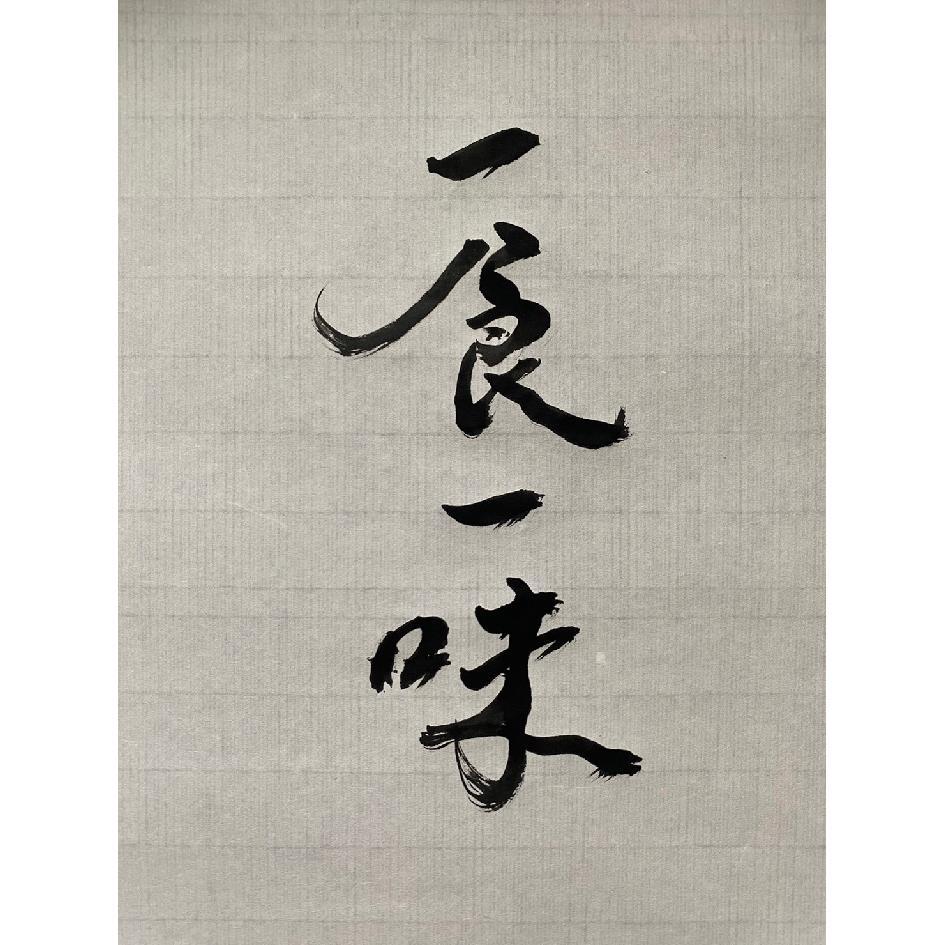 一食一味